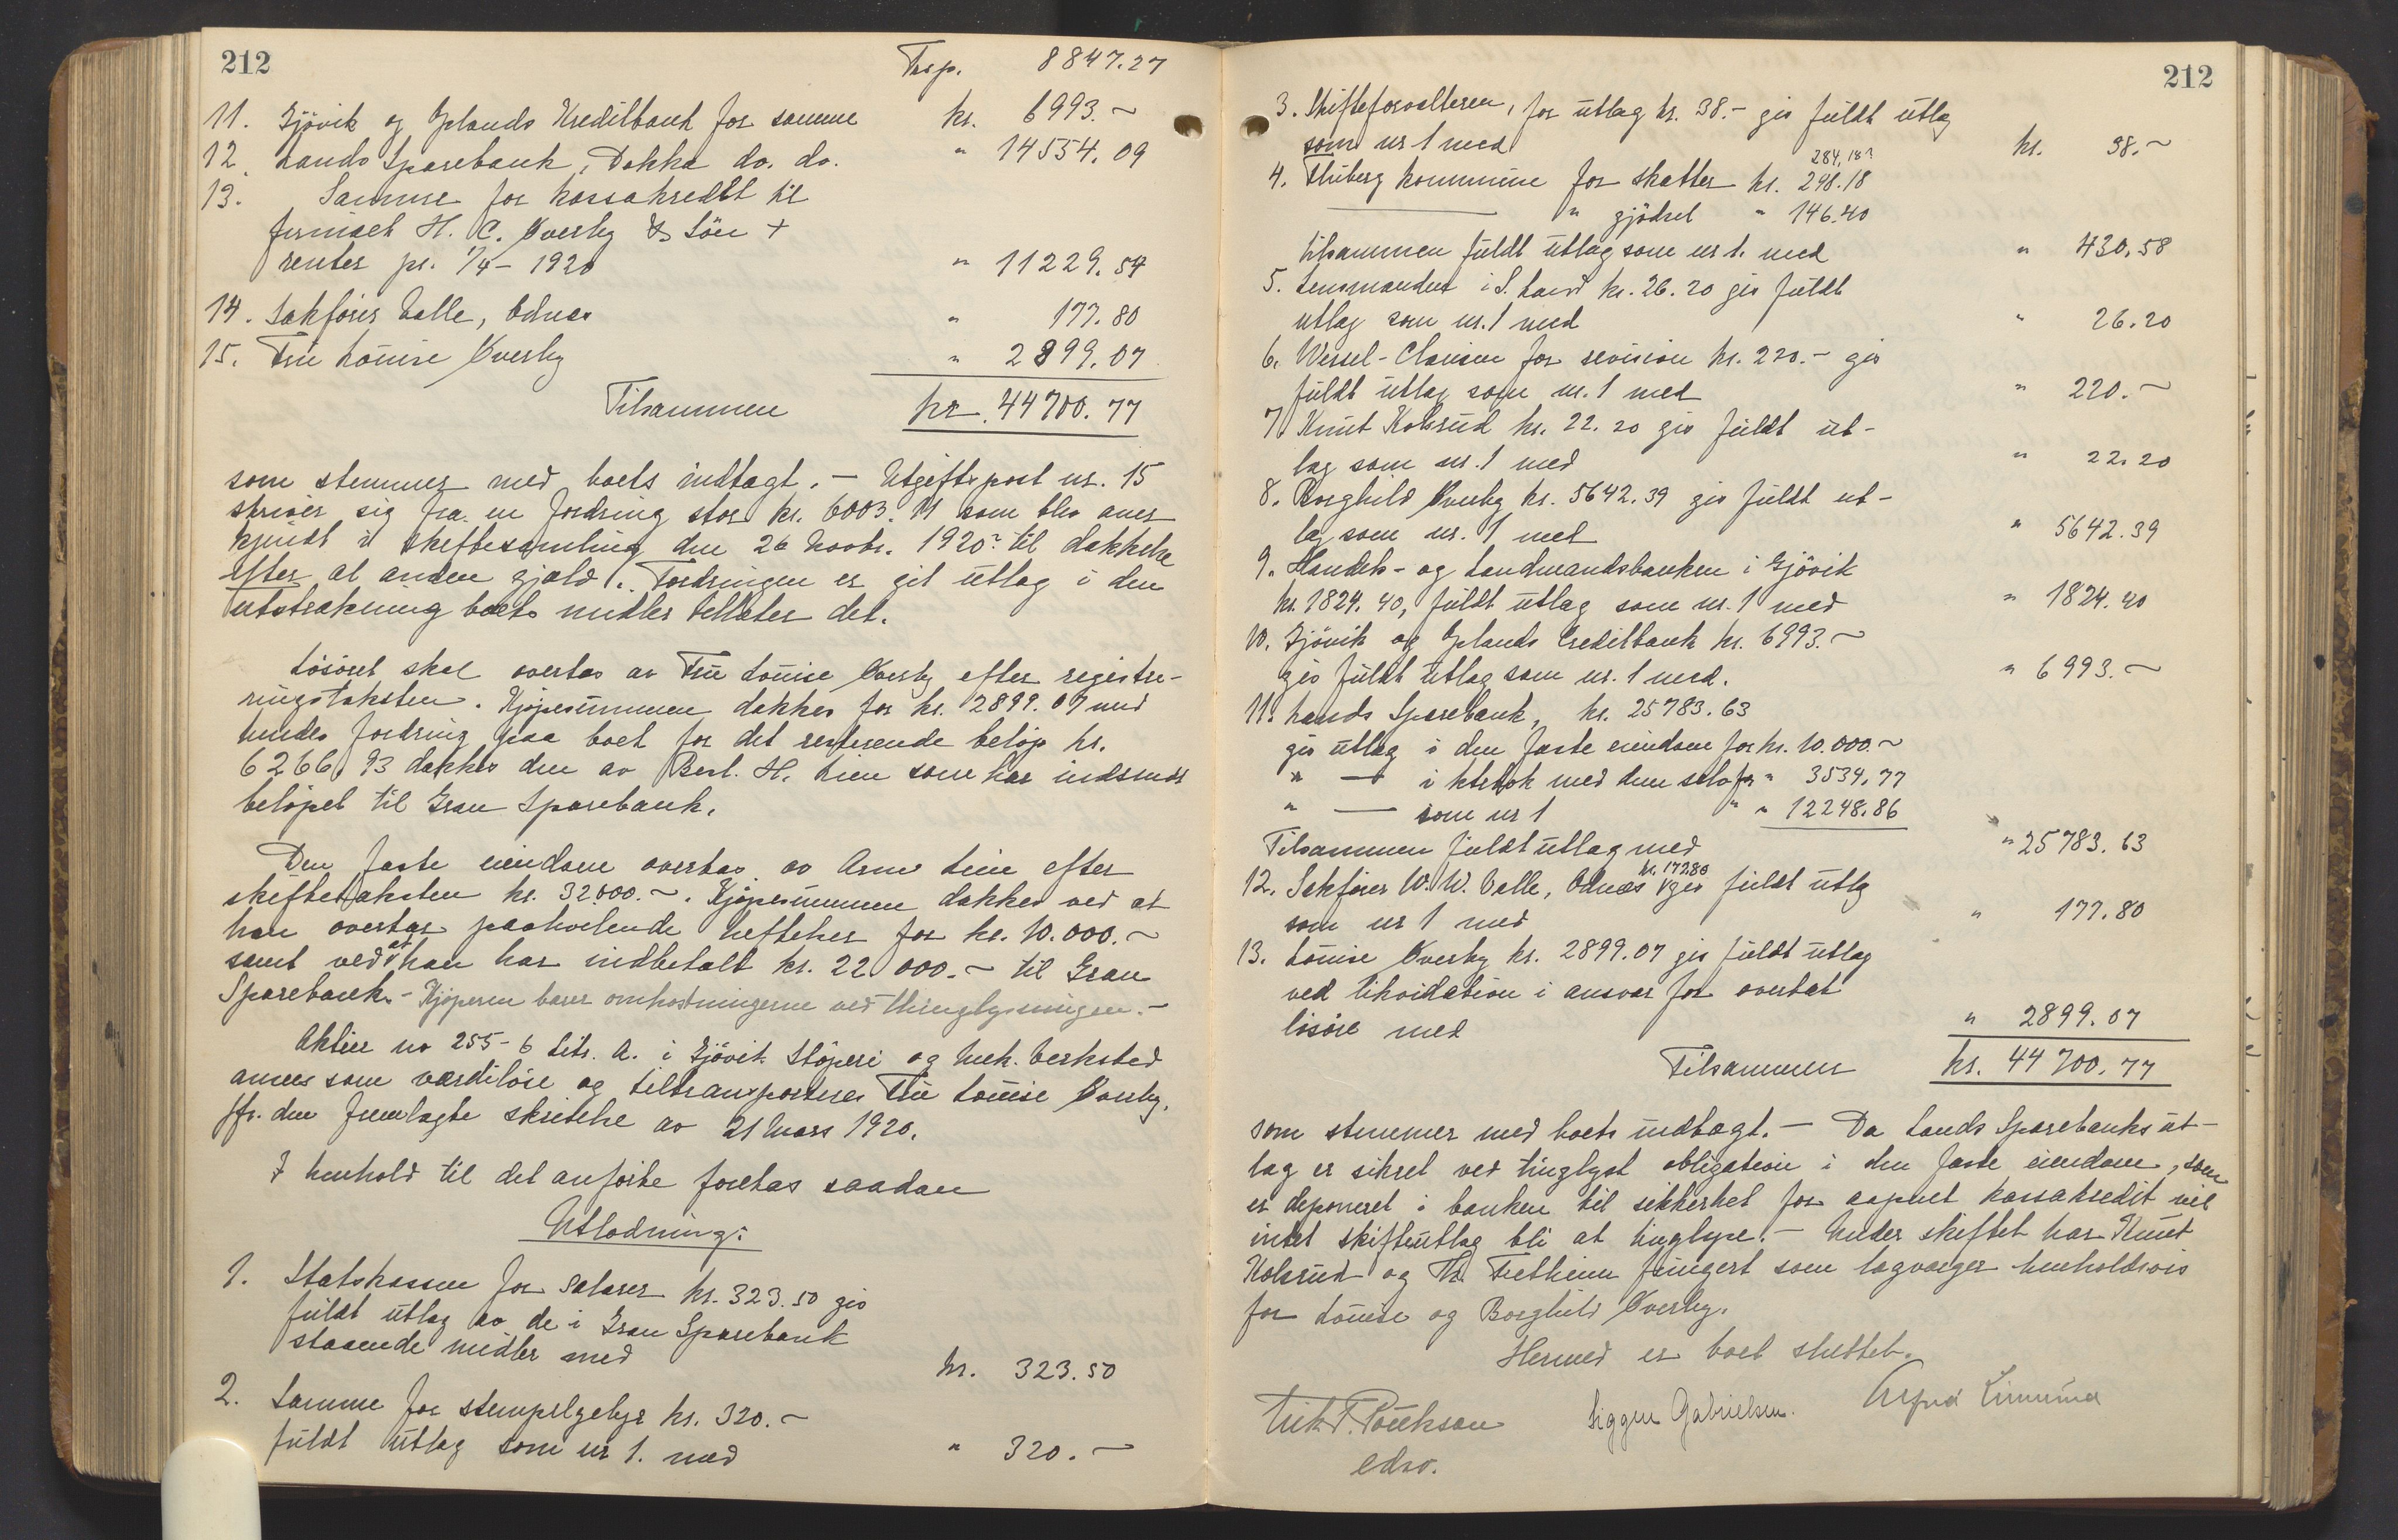 212
Trsp. 8847.27
11. Gjövik og Oplands Kreditbank for samme kr. 6993.~
12. Lands Sparebank, Dokka do. do. " 14554.09
13. Samme for kassakredit til
firmaet H. C. Överby & Sön +
renter pr. 1/4 - 1920 " 11229.54
14. Sakförer Valle, Odnes " 177.80
15. Fru Louise Överby " 2899.07
Tilsammen kr. 44700.77
som stemmer med boets indtægt. - Utgiftspost nr. 15
skriver sig fra en fordring stor kr. 6003.11 som blev aner
kjendt i skiftesamling den 26 Novbr. 1920 til dækkelse
efter al anden gjæld. Fordringen er git utlæg i den
utstrækning boets midler tillater det.
Lösöret skal overtas av Fru Louise Överby efter registre-
ringstaksten. Kjöpesummen dækkes for kr. 2899.07 med
hendes fordring paa boet for det resterende belöp kr.
6266,93 dækkes den av Berl. H. Lien som har indsendt
belöpet til Gran Sparebank.
Den faste eiendom overtas av Arne Lien efter
skiftetaksten kr. 32.000.~. Kjöpesummen dækkes ved at
han overtar paahvilende heftelser for kr. 10.000.~
samt ved at han har indbetalt kr. 22000.~ til Gran
Sparebank. - Kjöperen bærer omkostningerne ved thinglysningen. -
Aktier no 255-6 Litr. A. i Gjövik Stöperi og Mek. Verksted
ansees som værdilöse og tiltransporteres Fru Louise Överby,
jfr. den fremlagte skrivelse av 21 Mars 1920.
I henhold til det anförte foretas saadan
Utlodning:
1. Statskassen for salærer kr. 323.50 gis
fuldt utlæg av de i Gran Sparebank
staaende midler med kr. 323.50
2. Samme for stempelgebyr kr. 320.~
fuldt utlæg som nr 1. med " 320.~
212
3. Skifteforvalteren, for utlæg kr. 38.- gis fuldt utlæg
som nr 1 med kr. 38.~
284,18
4. Fluberg kommune for skatter kr. 298.18
" gjödsel " 146.40
tilsammen fuldt utlæg som nr 1. med " 430.58
5. Lensmanden i S. Land kr. 26.20 gis fuldt
utlæg som nr. 1 med " 26.20
6. Wessel-Clausen for revision kr. 220.- gis
fuldt utlæg som nr. 1 med " 220.~
7. Knut Kolsrud kr. 22.20 gis fuldt ut-
læg som nr. 1 med " 22.20
8. Borghild Överby kr. 5642.39 gis fuldt ut-
læg som nr. 1 med " 5642.39
9. Handels- og Landmandsbanken i Gjövik
kr. 1824.40, fuldt utlæg som nr. 1 med " 1824.40
10. Gjövik og Oplands Creditbank kr. 6993.~
gis fuldt utlæg som nr. 1 med. " 6993.~
11. Lands Sparebank, kr. 25783.63
gis utlæg i den faste eiendom for kr. 10.000.~
" — i med den for " 3534.77
" — som nr 1 " " 12248.86
Tilsammen fuldt utlæg med " 25783.63
kr. 177.80
12. Sakförer W. W. Valle, Odnæs gis fuldt utlæg
som nr 1 med " 177.80
13. Louise Överby kr. 2899.07 gis fuldt utlæg
ved likvidation i ansvar for overtat
lösöre med " 2899.07
Tilsammen kr. 44700.77
som stemmer med boets indtægt. - Da Lands Sparebanks ut-
læg er sikret ved tinglyst obligation i den faste eiendom, som
er deponeret i banken til sikkerhet for aapnet kassakredit vil
intet skifteutlæg bli at tinglyse. - Under skiftet har Knut
Kolsrud og Th. Fretheim fungert som lagværger henholdsvis
for Louise og Borghild Överby.
Hermed er boet sluttet.
Erik T. Poulsson Sigguu Gabrielsen. Linnerud
edsv.